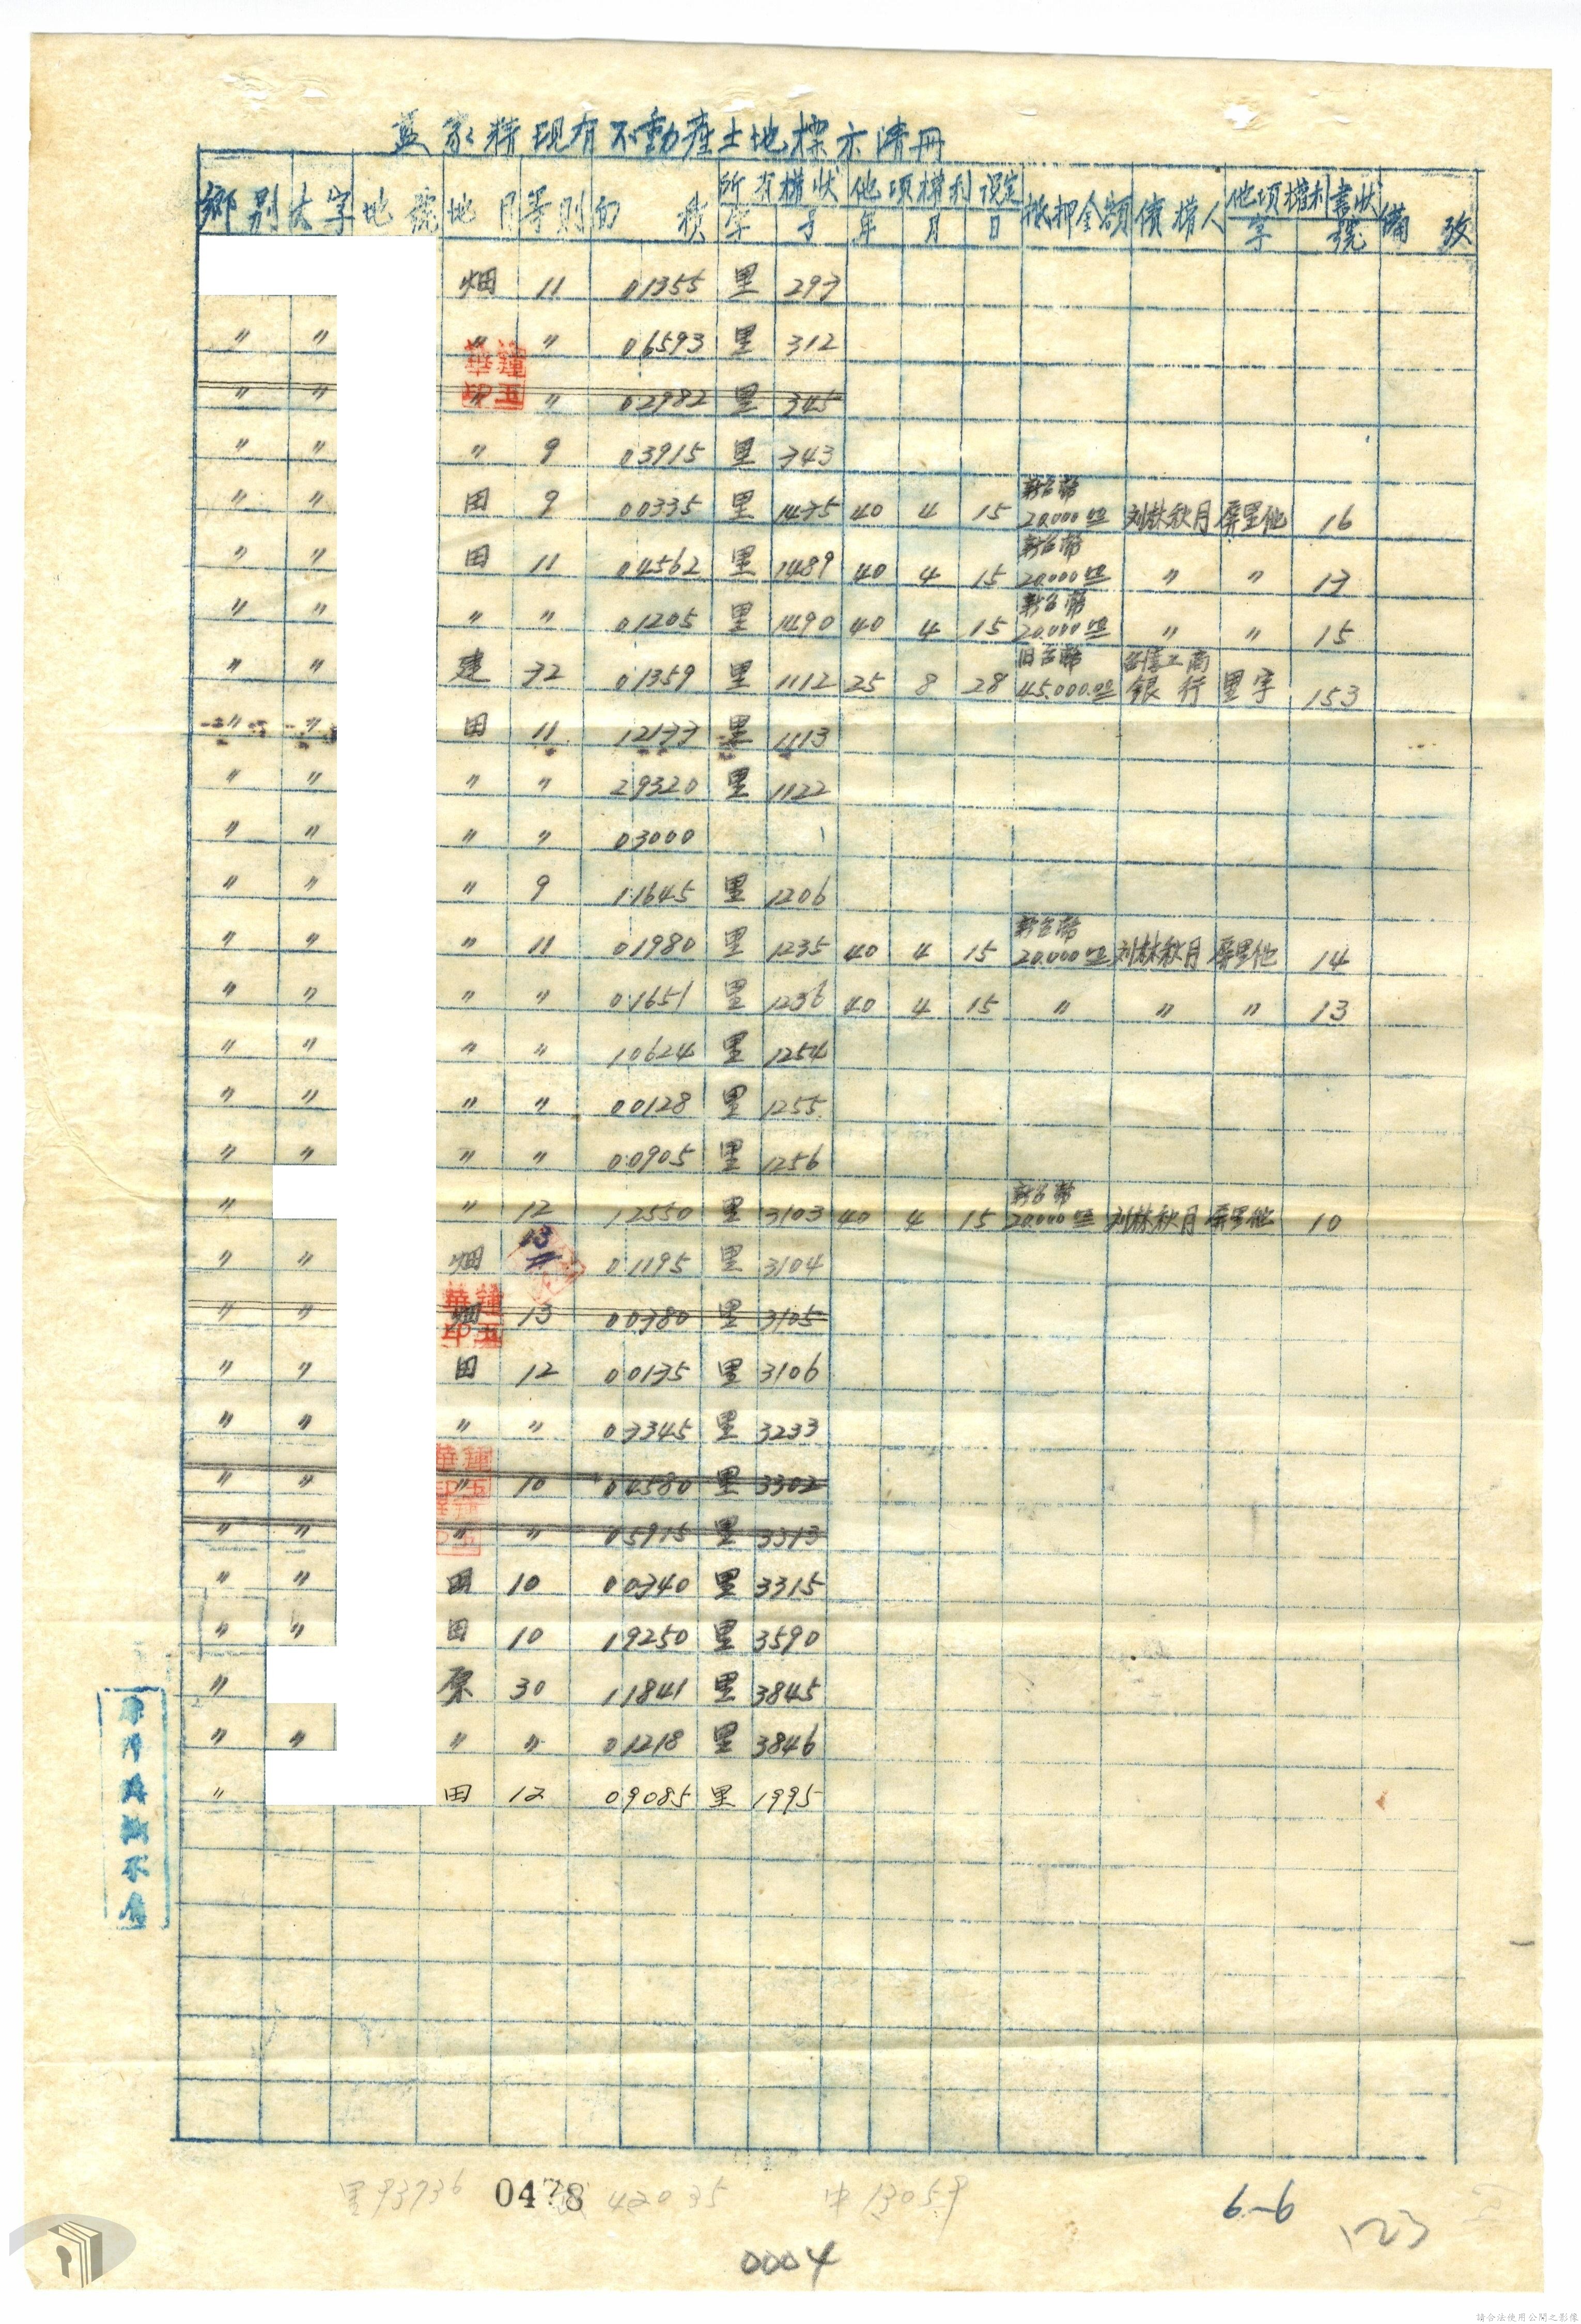 藍家精現有不動產土地標示清冊
鄉別 大字 地號 地目 等則 面積 所有權狀 他項權利設定 抵押金額 債權人 他項權利書狀 備攷
字 号 年 月 日 字 號
畑 11 01355 里 297
〃 〃 〃 〃 06593 里 312
〃 〃 〃 〃 02982 里 345
〃 〃 〃 9 03915 里 343
〃 〃 田 9 00335 里 1475 40 4 15 新台幣 20,000.00 刘林秋月 屏里他 16
〃 〃 田 11 04562 里 1489 40 4 15 新台幣 20,000.00 〃 〃 17
〃 〃 〃 〃 01205 里 1490 40 4 15 新台幣 20,000.00 〃 〃 15
〃 〃 建 72 01359 里 1112 25 8 28 旧台幣 45,000.00 工商銀行 里字 153
〃 〃 田 11 12177 里 1113
〃 〃 〃 〃 29320 里 1122
〃 〃 〃 〃 03000
〃 〃 〃 9 11645 里 1206
〃 〃 〃 11 01980 里 1235 40 4 15 新台幣 20,000.00 刘林秋月 屏里他 14
〃 〃 〃 〃 01651 里 1236 40 4 15 〃 〃 〃 13
〃 〃 〃 〃 10624 里 1254
〃 〃 〃 〃 00128 里 1255
〃 〃 〃 〃 00905 里 1256
〃 〃 12 12550 里 3103 40 4 15 新台幣 20,000.00 刘林秋月 屏里他 10
〃 〃 畑 13 01195 里 3104
〃 〃 畑 13 00380 里 3105
〃 〃 田 12 00135 里 3106
〃 〃 〃 〃 03345 里 3233
〃 〃 〃 10 04580 里 3302
〃 〃 〃 〃 05915 里 3313
〃 〃 田 10 00340 里 3315
〃 〃 田 10 19250 里 3590
〃 原 30 11841 里 3845
〃 〃 〃 〃 01218 里 3846
〃 田 12 09085 里 1995
里 93736 0478 42035 中 13059
6-6
123
0004
請合法使用公開之影像